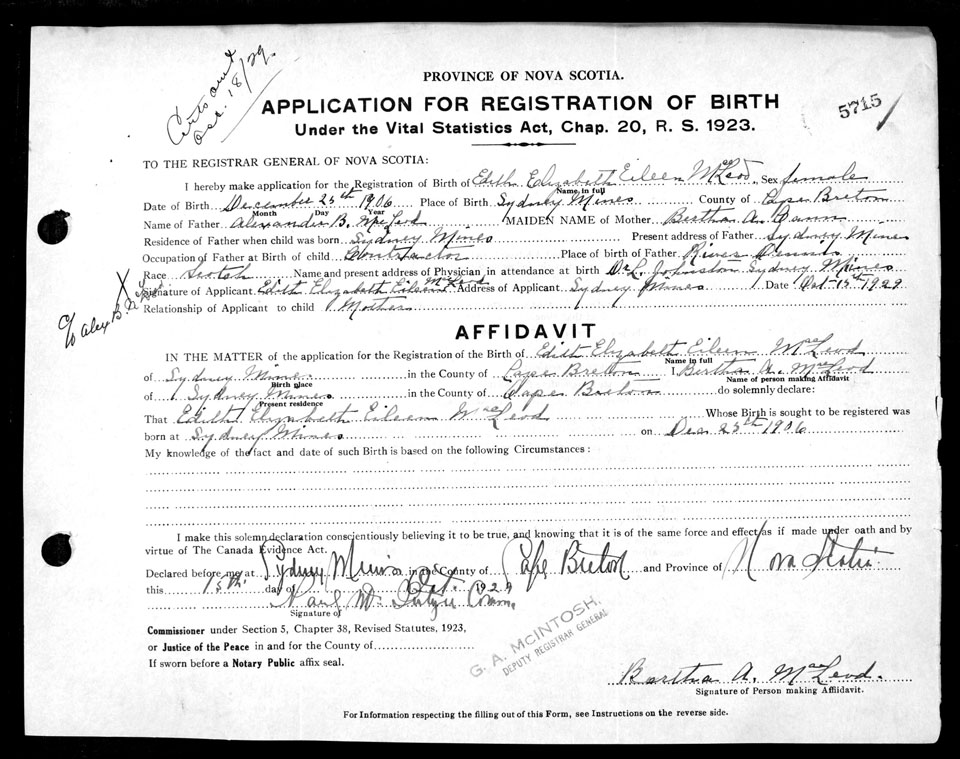 Certs out
Oct. 18/29.
PROVINCE OF NOVA SCOTIA.
APPLICATION FOR REGISTRATION OF BIRTH
5715
Under the Vital Statistics Act, Chap. 20, R. S. 1923.
TO THE REGISTRAR GENERAL OF NOVA SCOTIA:
I hereby make application for the Registration of Birth of Edith Elizabeth Eileen MacLeod, Sex female
Name in full
Date of Birth December 25th 1906 Place of Birth Sydney Mines County of Cape Breton
Month Day Year
Name of Father Alexander B. MacLeod MAIDEN NAME of Mother Bertha A.
Residence of Father when child was born Sydney Mines Present address of Father Sydney Mines
Occupation of Father at Birth of child Contractor Place of birth of Father River Dennis
Race Scotch Name and present address of Physician in attendance at birth Dr L. Johnston Sydney Mines
Signature of Applicant Edith Elizabeth Eileen McLeod Address of Applicant Sydney Mines Date Oct 15th 1929
Relationship of Applicant to child Mother
X
c/o Alex B.
AFFIDAVIT
IN THE MATTER of the application for the Registration of the Birth of Edith Elizabeth Eileen MacLeod
Name in full
of Sydney Mines in the County of Cape Breton I Bertha A. MacLeod
Birth place Name of person making Affidavit
of Sydney Mines in the County of Cape Breton do solemnly declare:
Present residence
That Edith Elizabeth Eileen MacLeod Whose Birth is sought to be registered was
born at Sydney Mines on Dec 25th 1906
My knowledge of the fact and date of such Birth is based on the following Circumstances:
I make this solemn declaration conscientiously believing it to be true, and knowing that it is of the same force and effect as if made under oath and by
virtue of The Canada Evidence Act.
Declared before me at Sydney Mines in the County of Cape Breton and Province of Nova Scotia
this 15th. day of Oct. 1929
Comm.
Signature of
Commissioner under Section 5, Chapter 38, Revised Statutes, 1923,
or Justice of the Peace in and for the County of
If sworn before a Notary Public affix seal.
G. A. MCINTOSH,
DEPUTY REGISTRAR GENERAL
Bertha A. MacLeod.
Signature of Person making Affidavit.
For Information respecting the filling out of this Form, see Instructions on the reverse side.